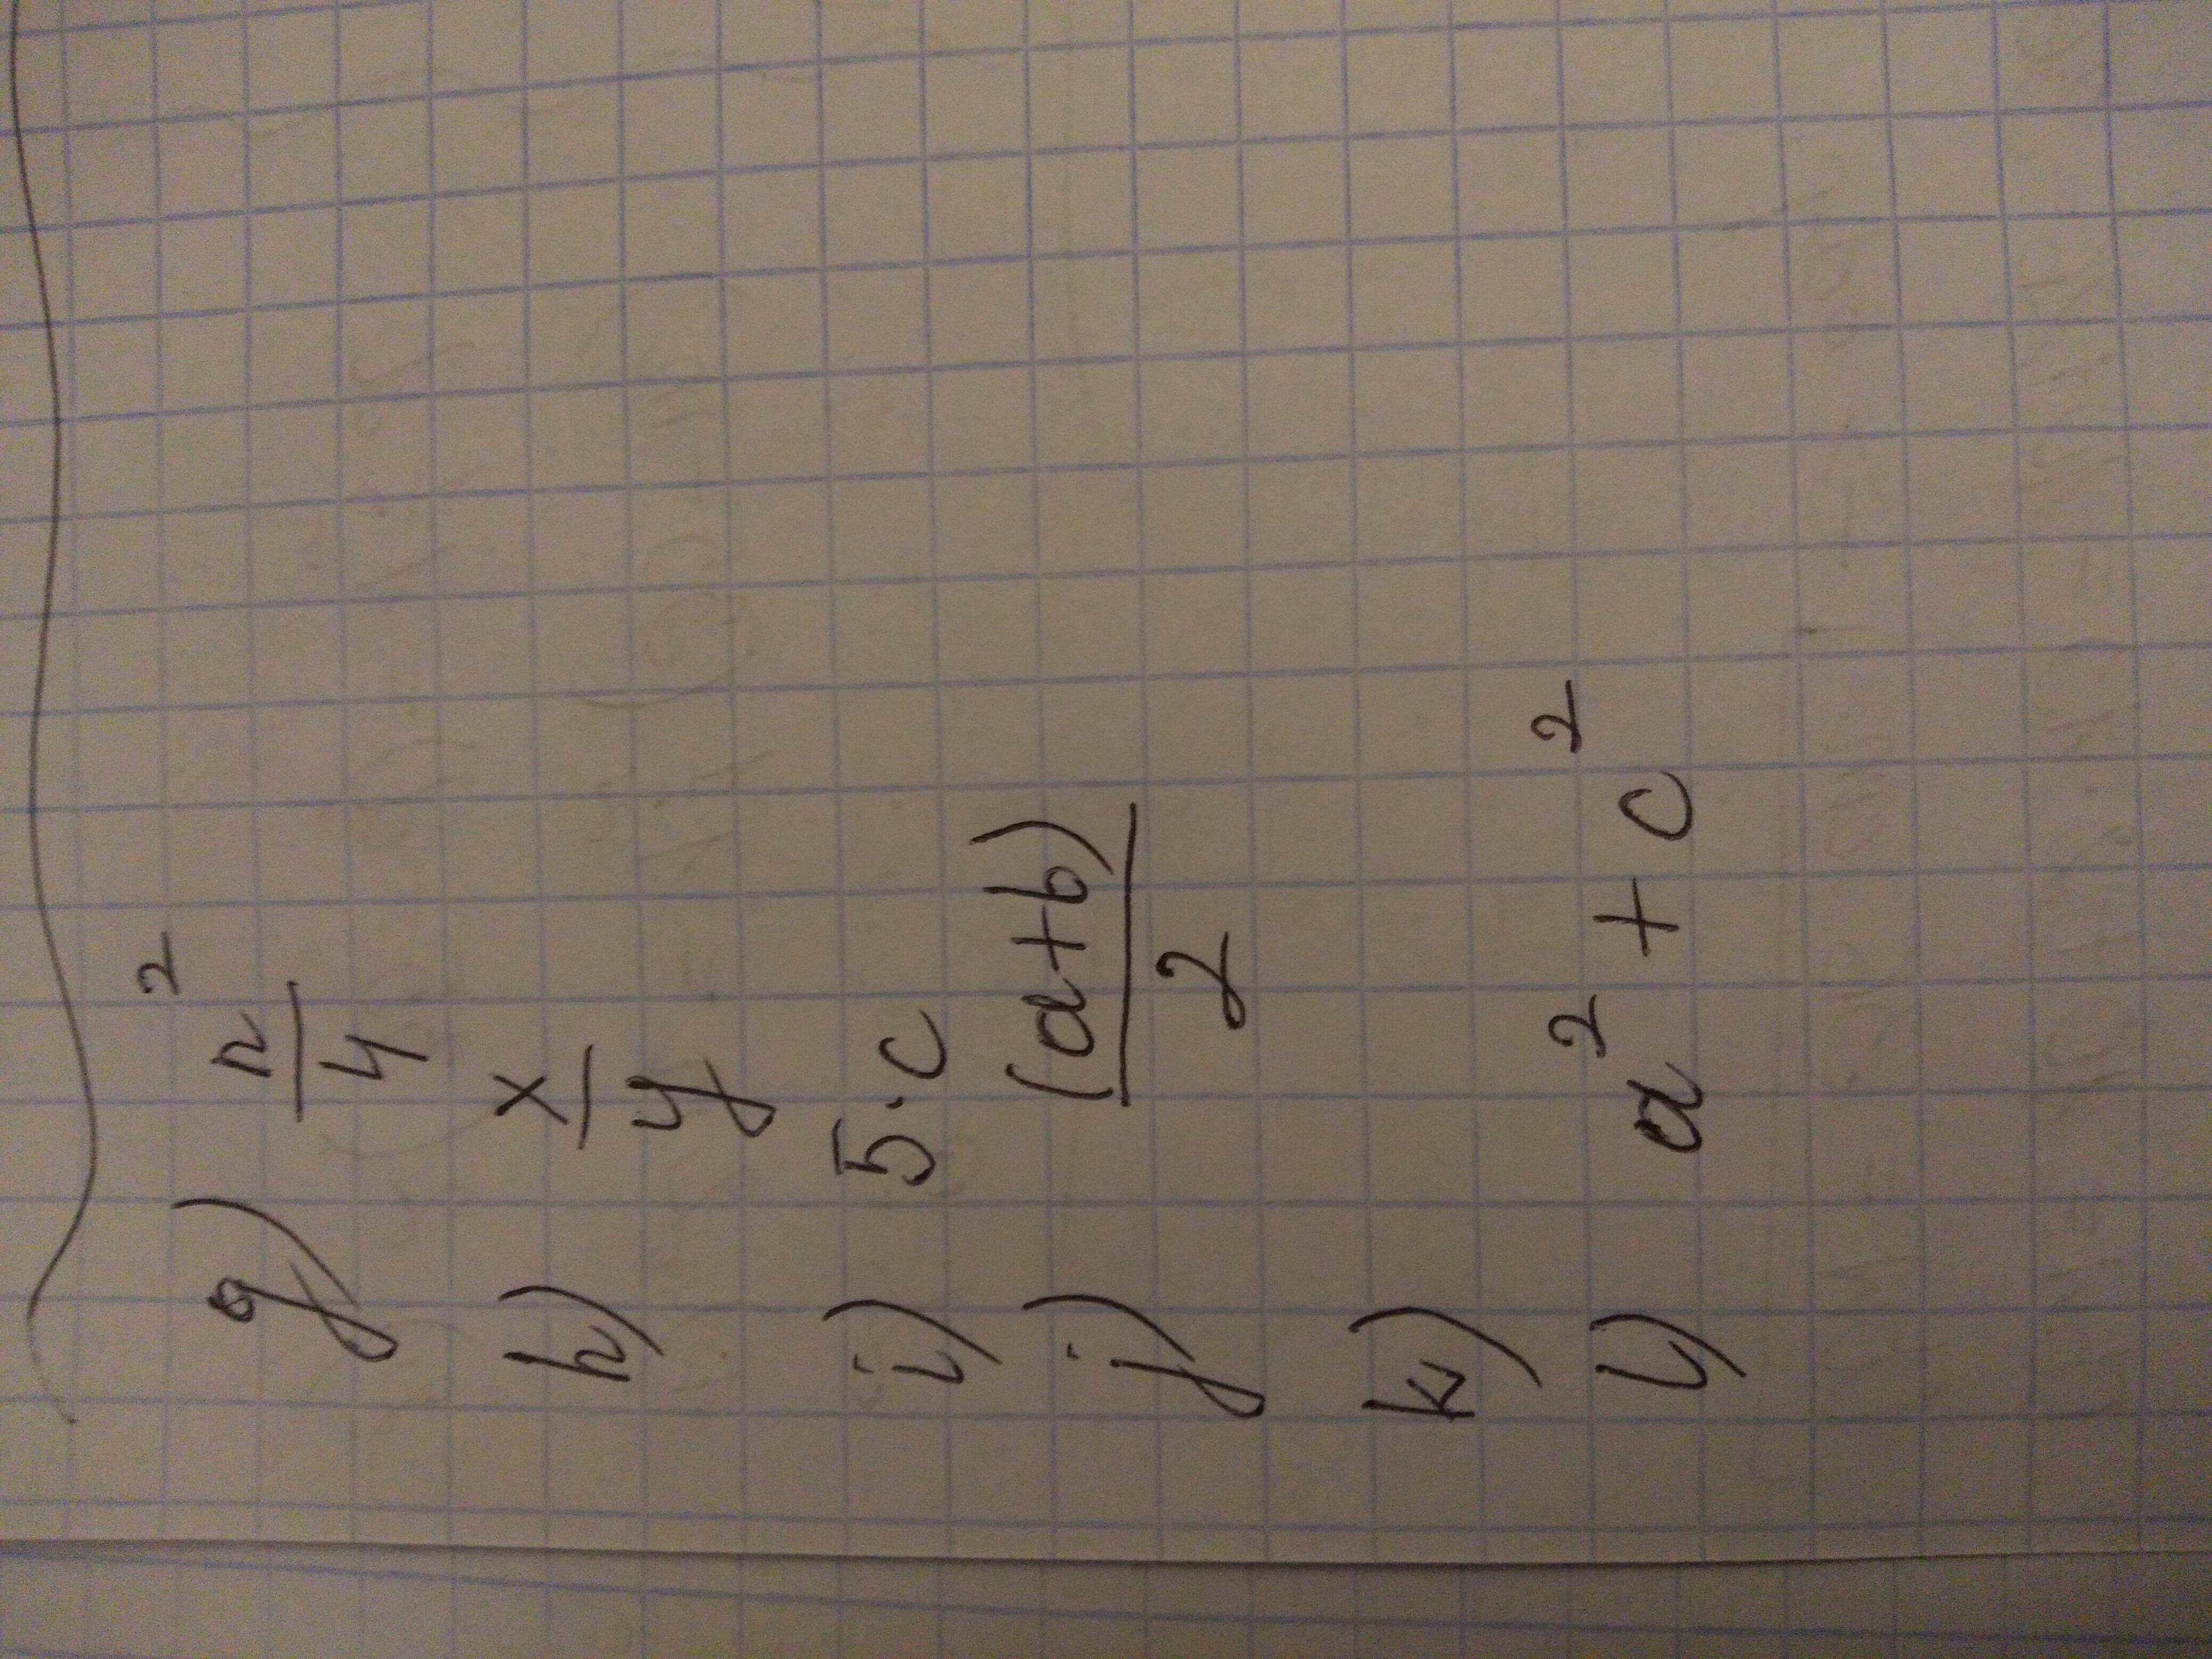 g) n²/4
h) x/y
i) 5·c
j) (a+b)/2
k)
l) a² + c²